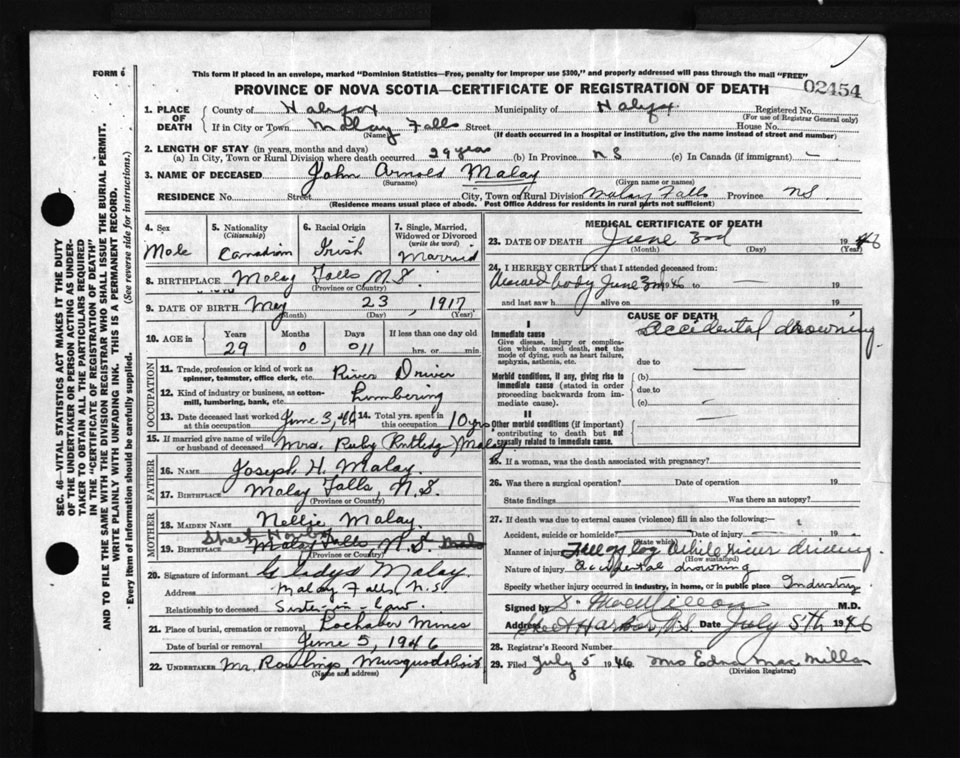 This form if placed in an envelope, marked "Dominion Statistics—Free, penalty for improper use $300," and properly addressed will pass through the mail "FREE"
FORM 6
PROVINCE OF NOVA SCOTIA—CERTIFICATE OF REGISTRATION OF DEATH
02454
1. PLACE OF DEATH County of Halifax Municipality of Halifax Registered No.
(For use of Registrar General only)
If in City or Town Malay Falls Street House No.
(Name) (If death occurred in a hospital or institution, give the name instead of street and number)
2. LENGTH OF STAY (in years, months and days)
(a) In City, Town or Rural Division where death occurred 29 years (b) In Province NS (c) In Canada (if immigrant) —
3. NAME OF DECEASED John Arnold Malay
(Surname) (Given name or names)
RESIDENCE No. Street City, Town or Rural Division Malay Falls Province NS
(Residence means usual place of abode. Post Office Address for residents in rural parts not sufficient)
4. Sex Male
5. Nationality (Citizenship) Canadian
6. Racial Origin Irish
7. Single, Married, Widowed or Divorced (write the word) Married
8. BIRTHPLACE Malay Falls N.S.
(Province or Country)
9. DATE OF BIRTH May 23 1917
(Month) (Day) (Year)
10. AGE in Years 29 Months 0 Days 011 If less than one day old hrs. or min.
OCCUPATION
11. Trade, profession or kind of work as spinner, teamster, office clerk, etc. River Driver
12. Kind of industry or business, as cotton-mill, lumbering, bank, etc. Lumbering
13. Date deceased last worked at this occupation June 3, 46 14. Total yrs. spent in this occupation 10 yrs
15. If married give name of wife or husband of deceased Mrs. Ruby Rutledg Malay
FATHER
16. NAME Joseph H. Malay.
17. BIRTHPLACE Malay Falls, N.S.
(Province or Country)
MOTHER
18. MAIDEN NAME Nellie Malay.
Sheet Harbor
19. BIRTHPLACE Malay Falls N.S.
(Province or Country)
20. Signature of informant Gladys Malay.
Address Malay Falls, N.S.
Relationship to deceased Sister-in-law.
21. Place of burial, cremation or removal Lochaber Mines
Date of burial or removal June 5, 1946
22. UNDERTAKER Mr. Rawlings Musquodoboit
(Name and address)
MEDICAL CERTIFICATE OF DEATH
23. DATE OF DEATH June 3rd 1946
(Month) (Day) (Year)
24. I HEREBY CERTIFY that I attended deceased from:
body June 3rd 1946 to — 19
and last saw h alive on — 19
CAUSE OF DEATH
I
Immediate cause Accidental drowning
Give disease, injury or complication which caused death, not the mode of dying, such as heart failure, asphyxia, asthenia, etc.
due to
Morbid conditions, if any, giving rise to immediate cause (stated in order proceeding backwards from immediate cause).
(b)
due to
(c)
II
Other morbid conditions (if important) contributing to death but not causally related to immediate cause.
25. If a woman, was the death associated with pregnancy?
26. Was there a surgical operation? Date of operation 19
State findings Was there an autopsy?
27. If death was due to external causes (violence) fill in also the following:—
Accident, suicide or homicide? — Date of injury — 19
(State which)
Manner of injury Fell off log while river driving
(How sustained)
Nature of injury Accidental drowning
Specify whether injury occurred in industry, in home, or in public place Industry
Signed by M.D.
Address Sheet Harbor, N.S. Date July 5th 1946
28. Registrar's Record Number
29. Filed July 5 1946. Mrs Edna MacMillan
(Division Registrar)
SEC. 46—VITAL STATISTICS ACT MAKES IT THE DUTY
OF THE UNDERTAKER OR PERSON ACTING AS UNDER-
TAKER TO OBTAIN ALL THE PARTICULARS REQUIRED
IN THE "CERTIFICATE OF REGISTRATION OF DEATH"
AND TO FILE THE SAME WITH THE DIVISION REGISTRAR WHO SHALL ISSUE THE BURIAL PERMIT.
WRITE PLAINLY WITH UNFADING INK. THIS IS A PERMANENT RECORD.
Every item of information should be carefully supplied. (See reverse side for instructions.)